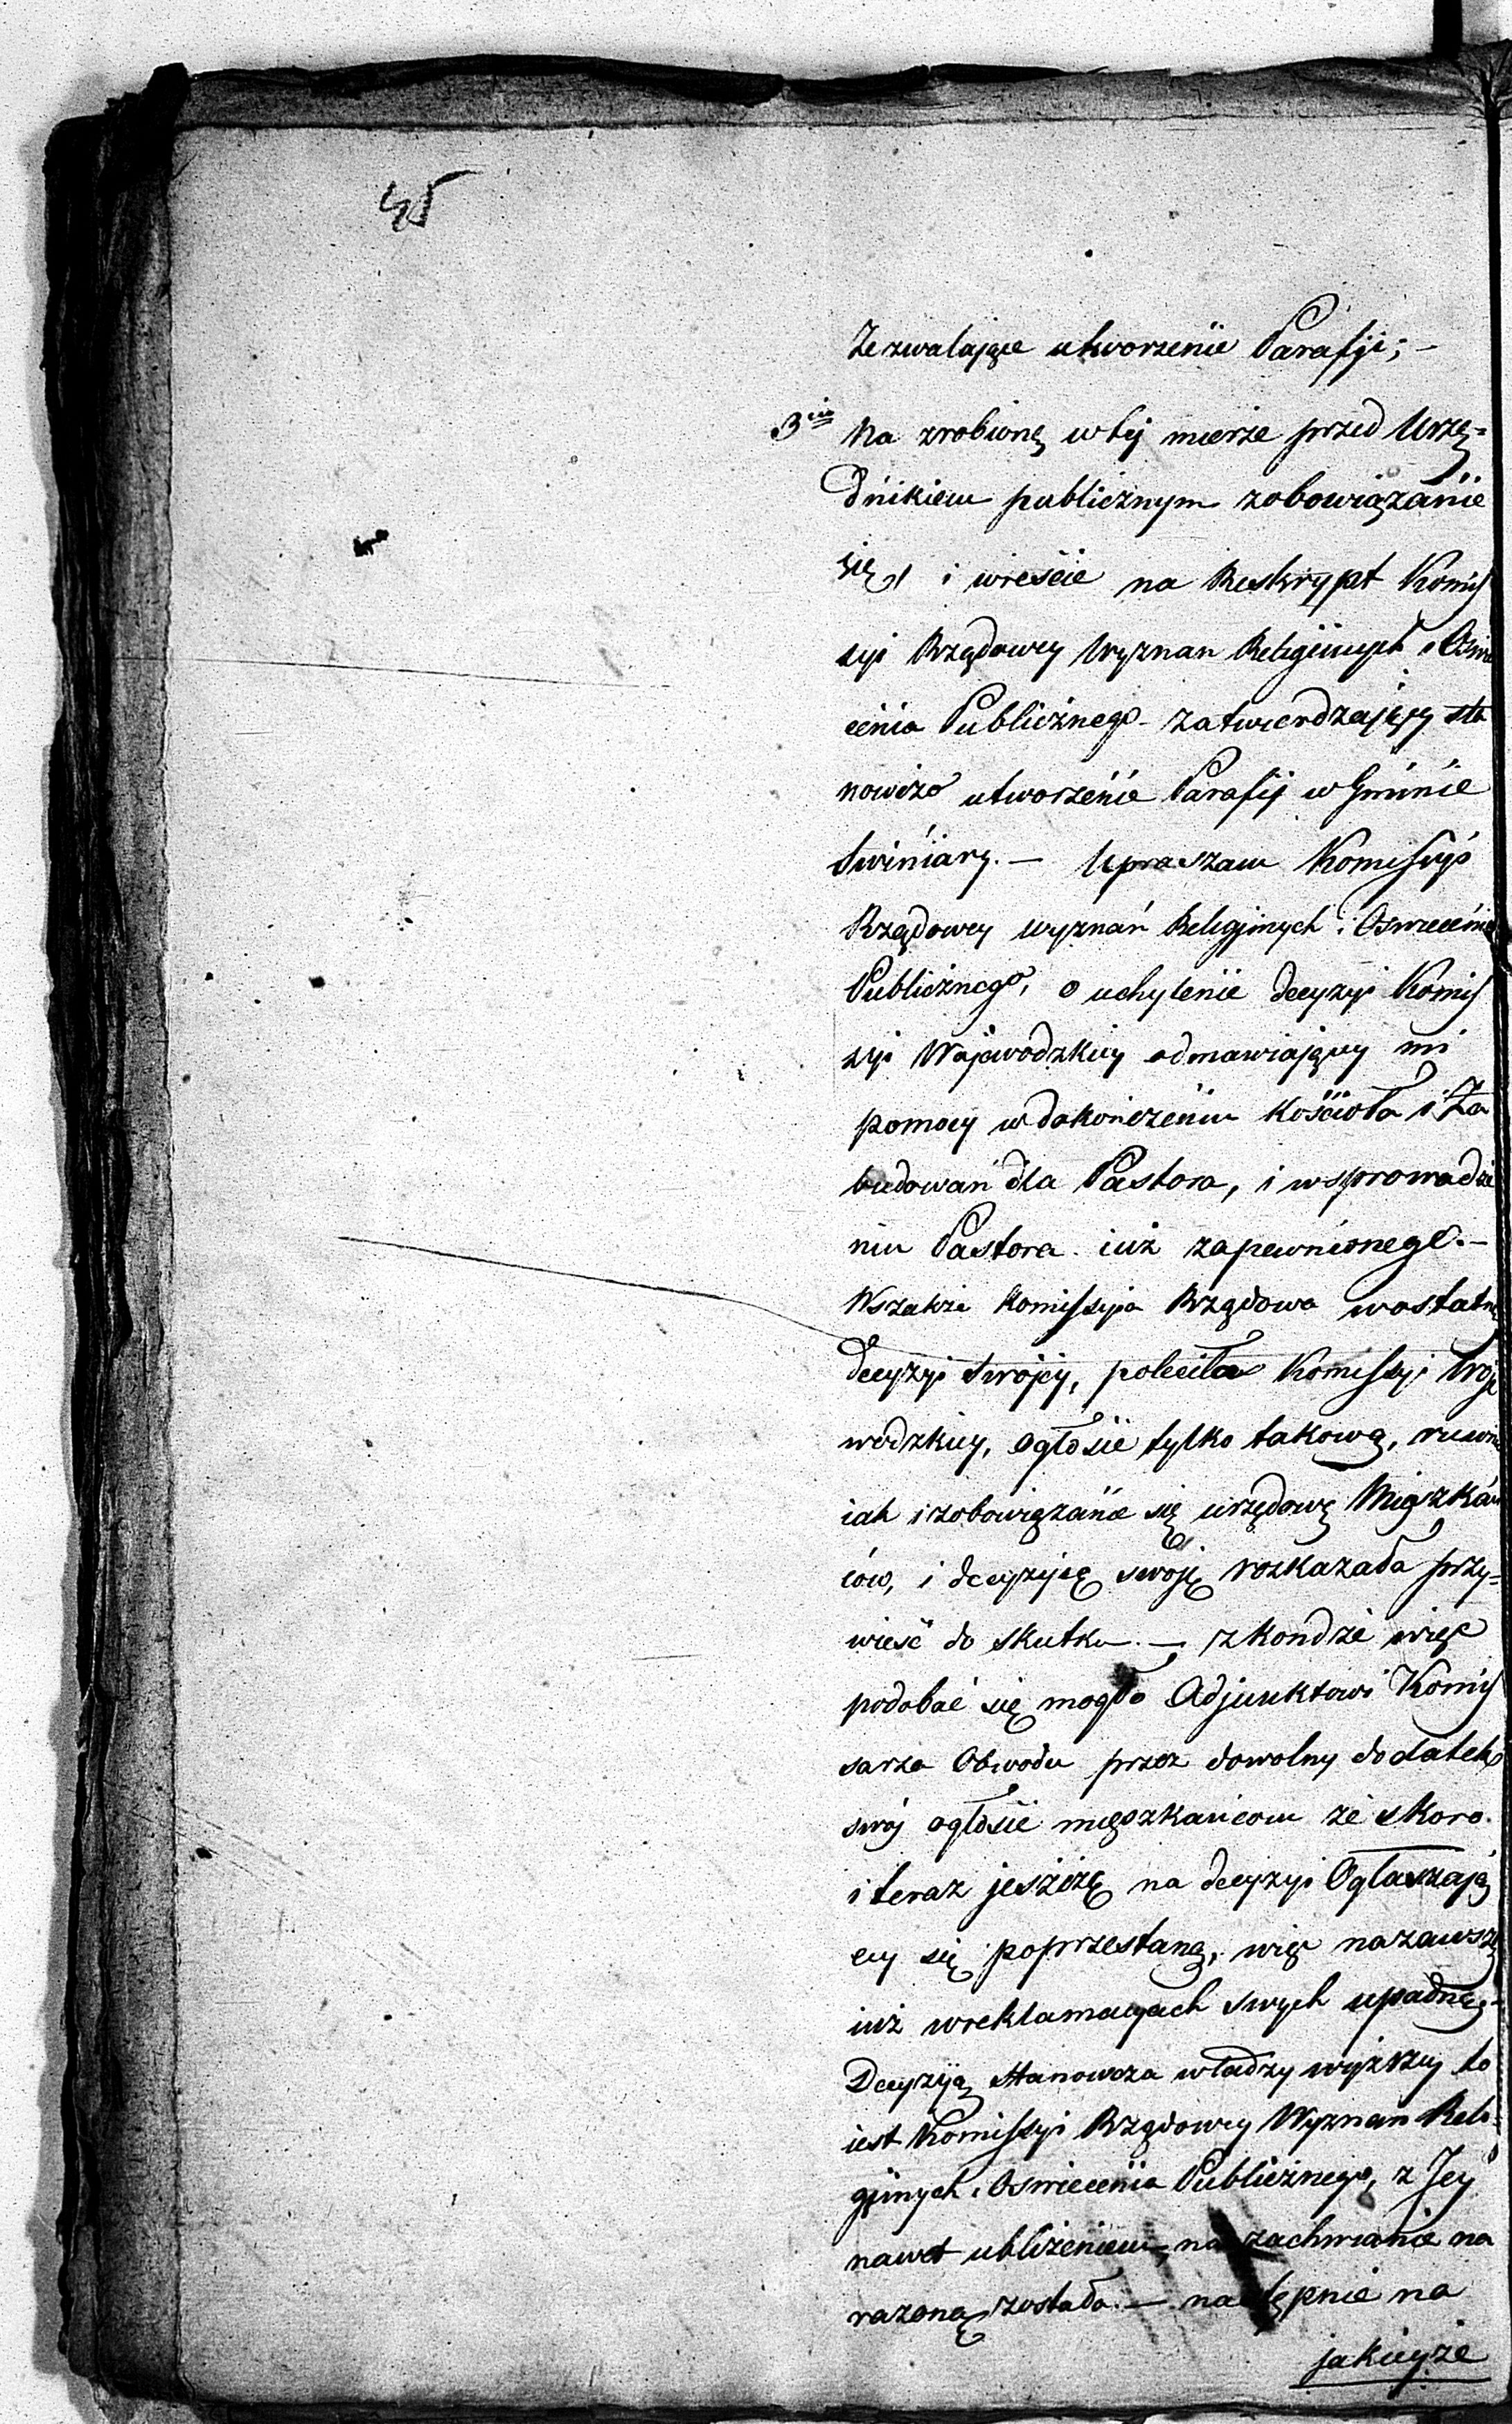 45
Zezwalające utworzenie Parafji; —
3cio Na zrobioną w tej mierze przed Urzę=
dnikiem publicznym zobowiązanie
się, i wreście na Reskrypt Komis
syi Rządowey Wyznan Religijnych i Oswie
cenia Publicznego zatwierdzający sta
nowczo utworzenie Parafij w Gminie
Swiniary. — Upraszam Komissyó
Rządowey wyznań Religijnych i Oswiecenia
Publicznego, o uchylenie decyzyi Komis
syi Wojewodzkiey odmawiaiącey mi
pomocy w dokończeniu Kościoła i Za
budowań dla Pastora, i wsprowadze
niu Pastora iuż zapewnionego. —
Wszakże Komissyia Rządowa w ostatn
decyzyi swojéy, poleciła Komissyi Woje
wodzkiey, ogłosić tylko takową,
iak i zobowiązanie się urzędowe Mieszkań
ców, i decyzyię swoję rozkazała przy=
wieść do skutku. — zkondże więc
podobać się mogło Adjunktowi Komis
sarza Obwodu przez dowolny dodatek
swój ogłosić mieszkańcom że skoro
i teraz jeszcze na decyzyi Ogłaszają
cey się poprzestaną, więc nazawsze
iuż w reklamacyach swych upadną. —
Decyzyią stanowcza władzy wyższey to
iest Komissyi Rządowey Wyznan Reli=
gijnych i Oswiecenia Publicznego, z Jey
nawet ubliżeniem, na zachwianie na
rażoną została. — następnie na
jakieyże